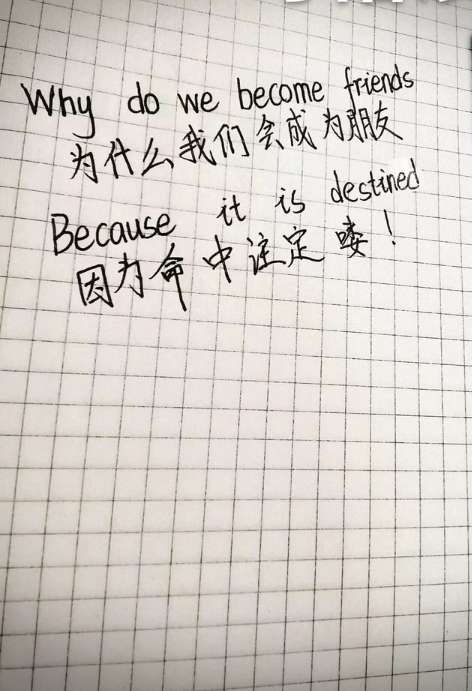 Why do we become friends
为什么我们会成为朋友
Because it is destined
因为命中注定喽！